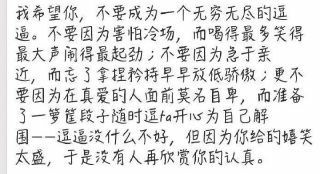 我希望你，不要成为一个无穷无尽的逗
逼。不要因为害怕冷场，而喝得最多笑得
最大声闹得最起劲；不要因为急于亲
近，而忘了拿捏矜持早早放低骄傲；更不
要因为在真爱的人面前莫名自卑，而准备
了一箩筐段子随时逗ta开心为自己解
围——逗逼没什么不好，但因为你给的嬉笑
太盛，于是没有人再欣赏你的认真。